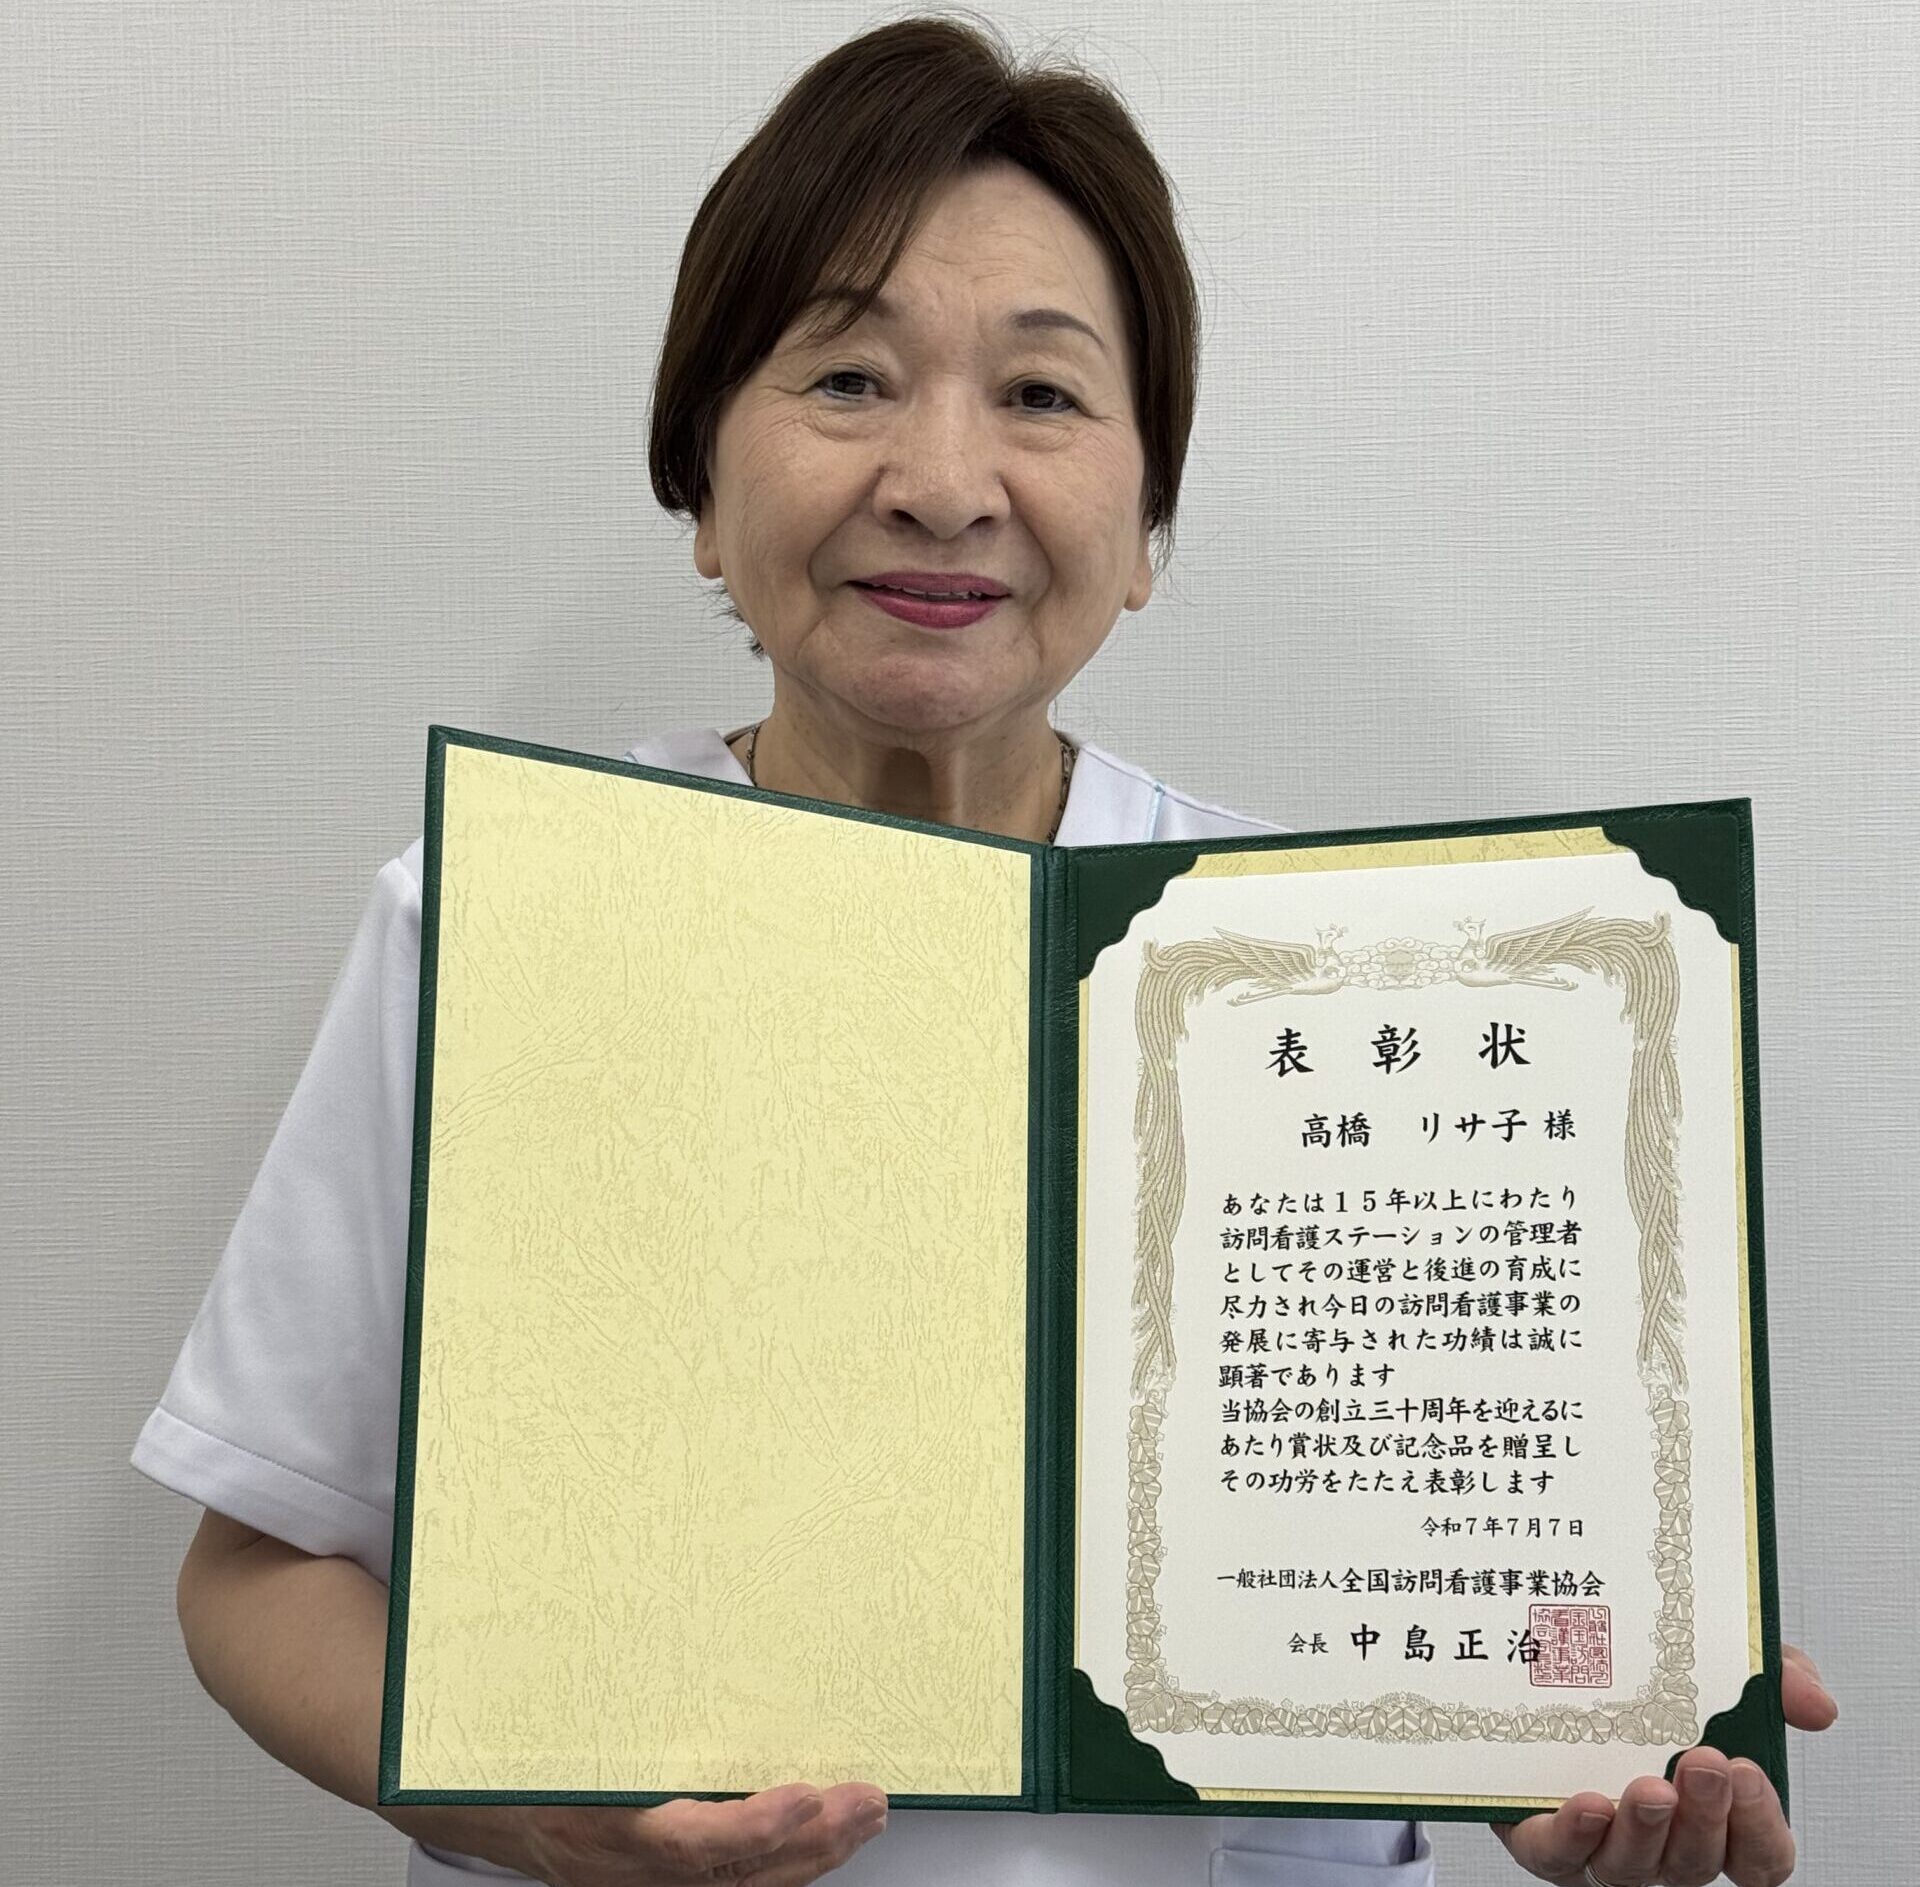 表彰状
高橋 リサ子 様
あなたは15年以上にわたり
訪問看護ステーションの管理者
としてその運営と後進の育成に
尽力され今日の訪問看護事業の
発展に寄与された功績は誠に
顕著であります
当協会の創立三十周年を迎えるに
あたり賞状及び記念品を贈呈し
その功労をたたえ表彰します
令和7年7月7日
一般社団法人全国訪問看護事業協会
会長 中島正治